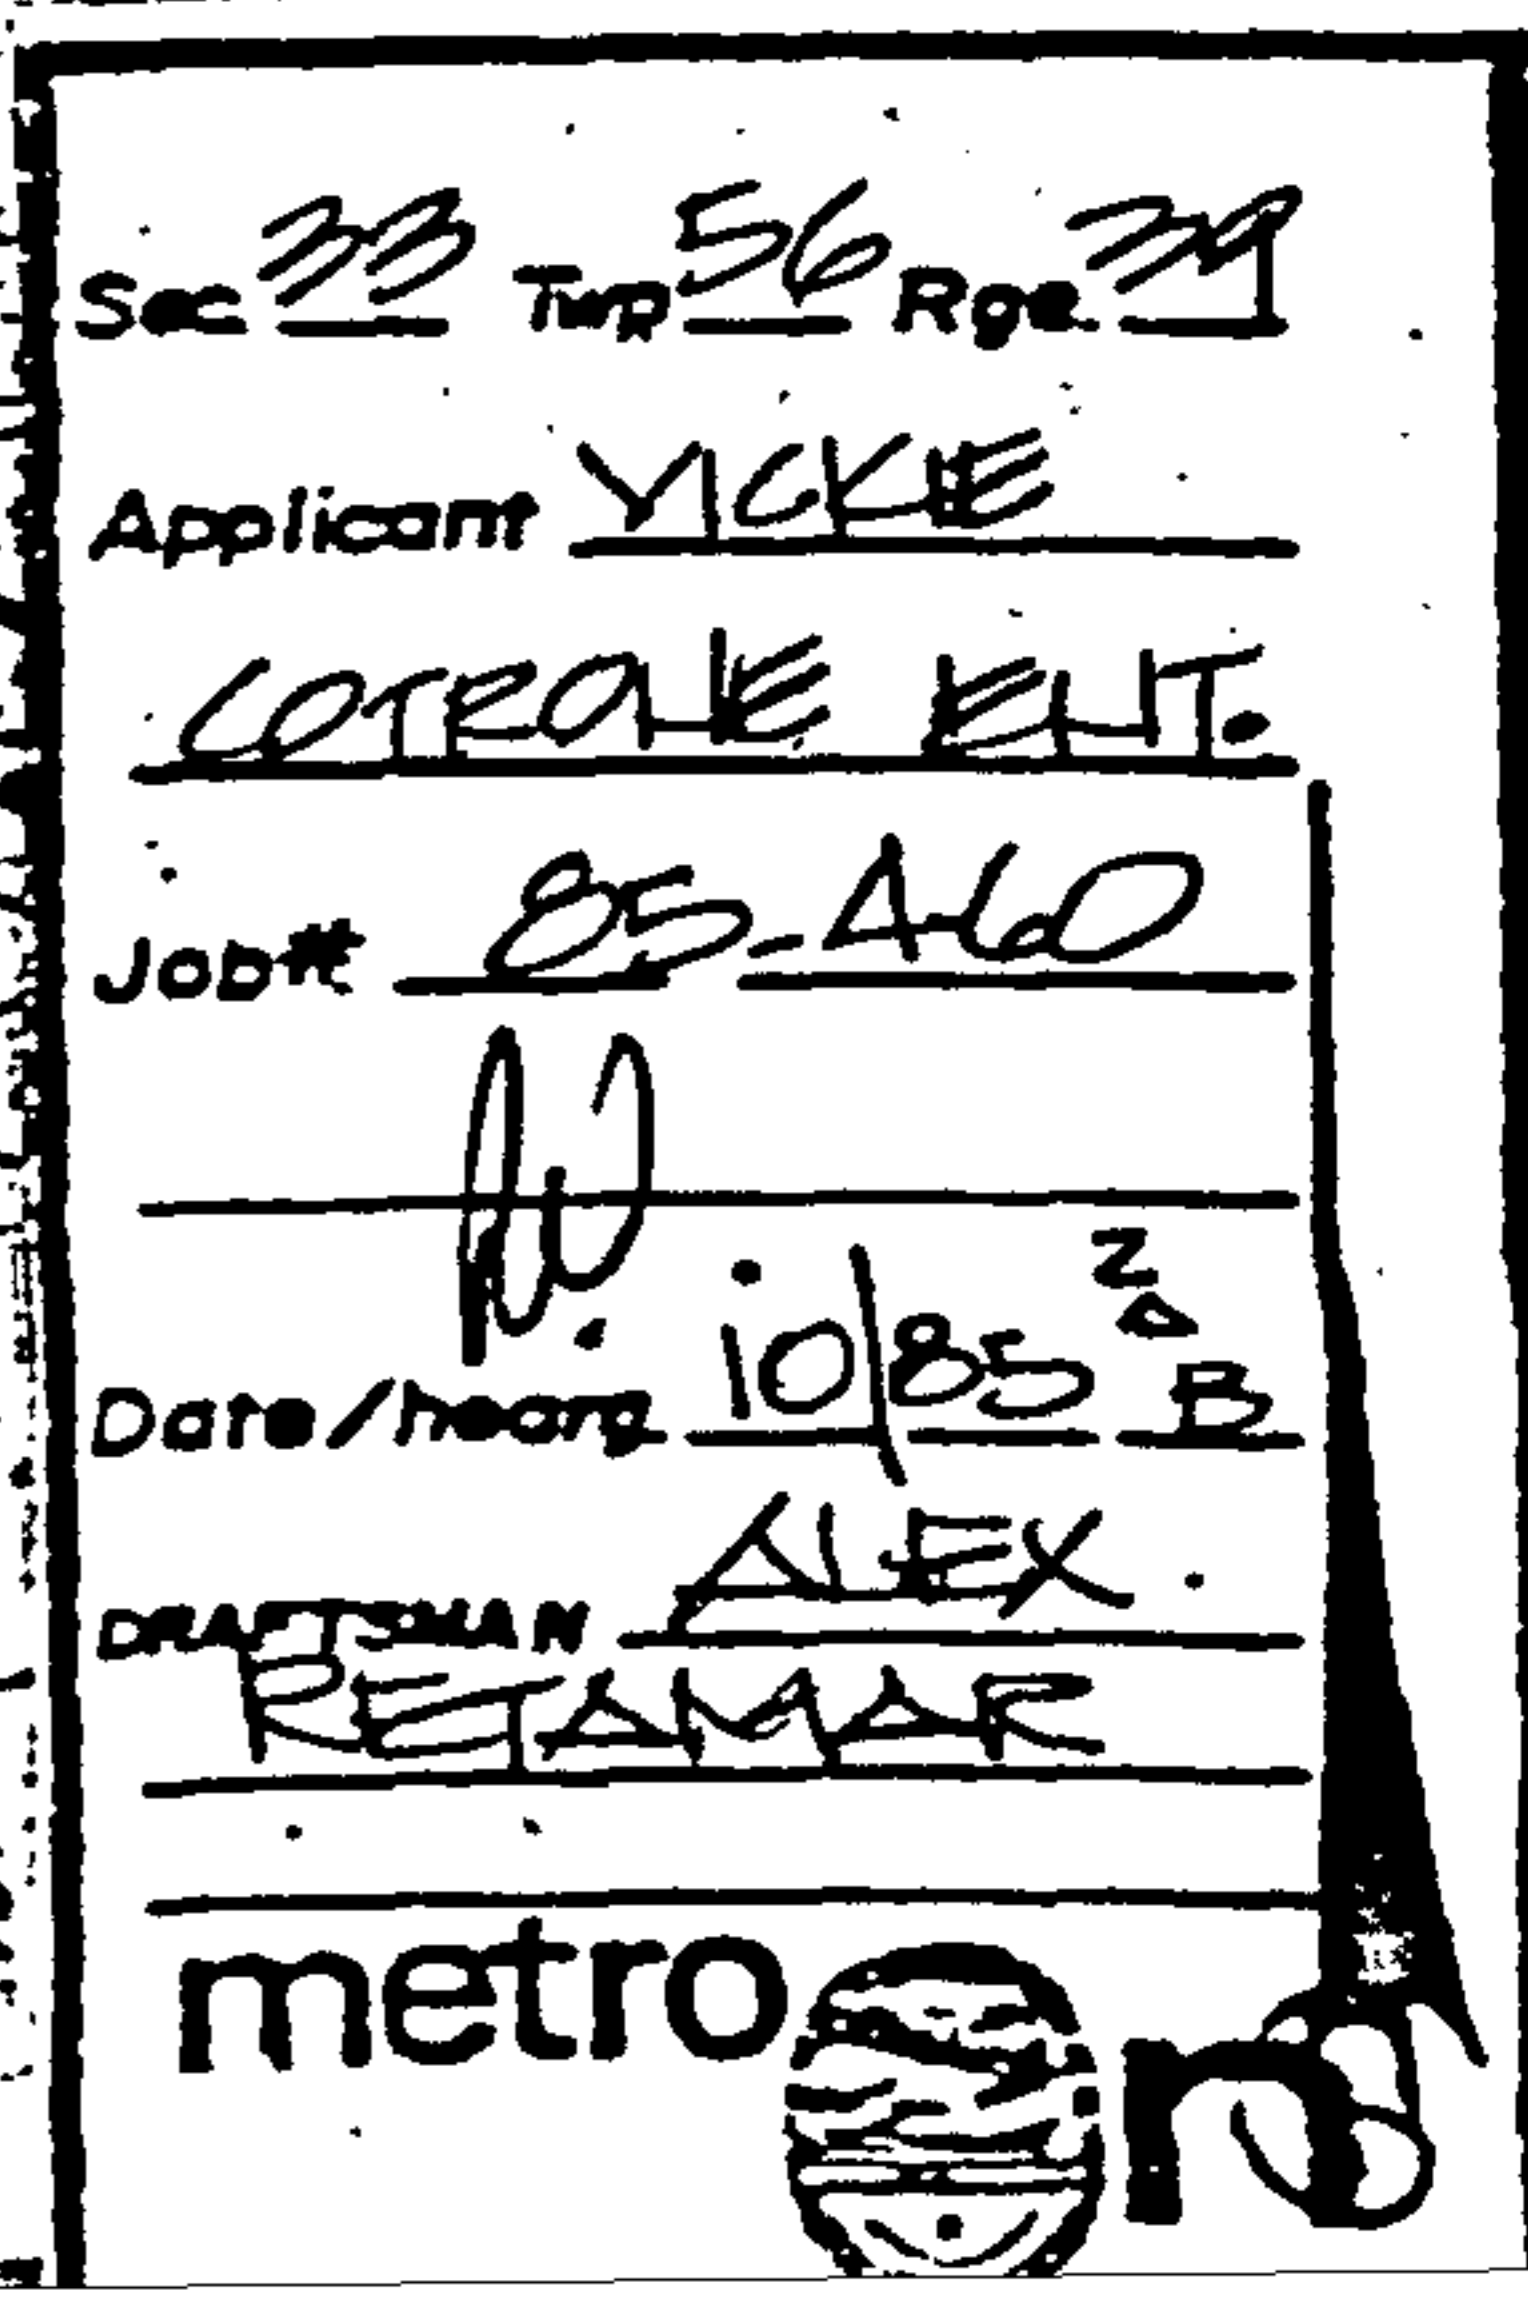 Sec 33 Twp 56 Rge 39
Applicant VICKIE
COTRONE ENT.
Job# 85-460
Date/hearg 10/85 ZAB
DRAFTSMAN ALEX
RETAMAR
metro